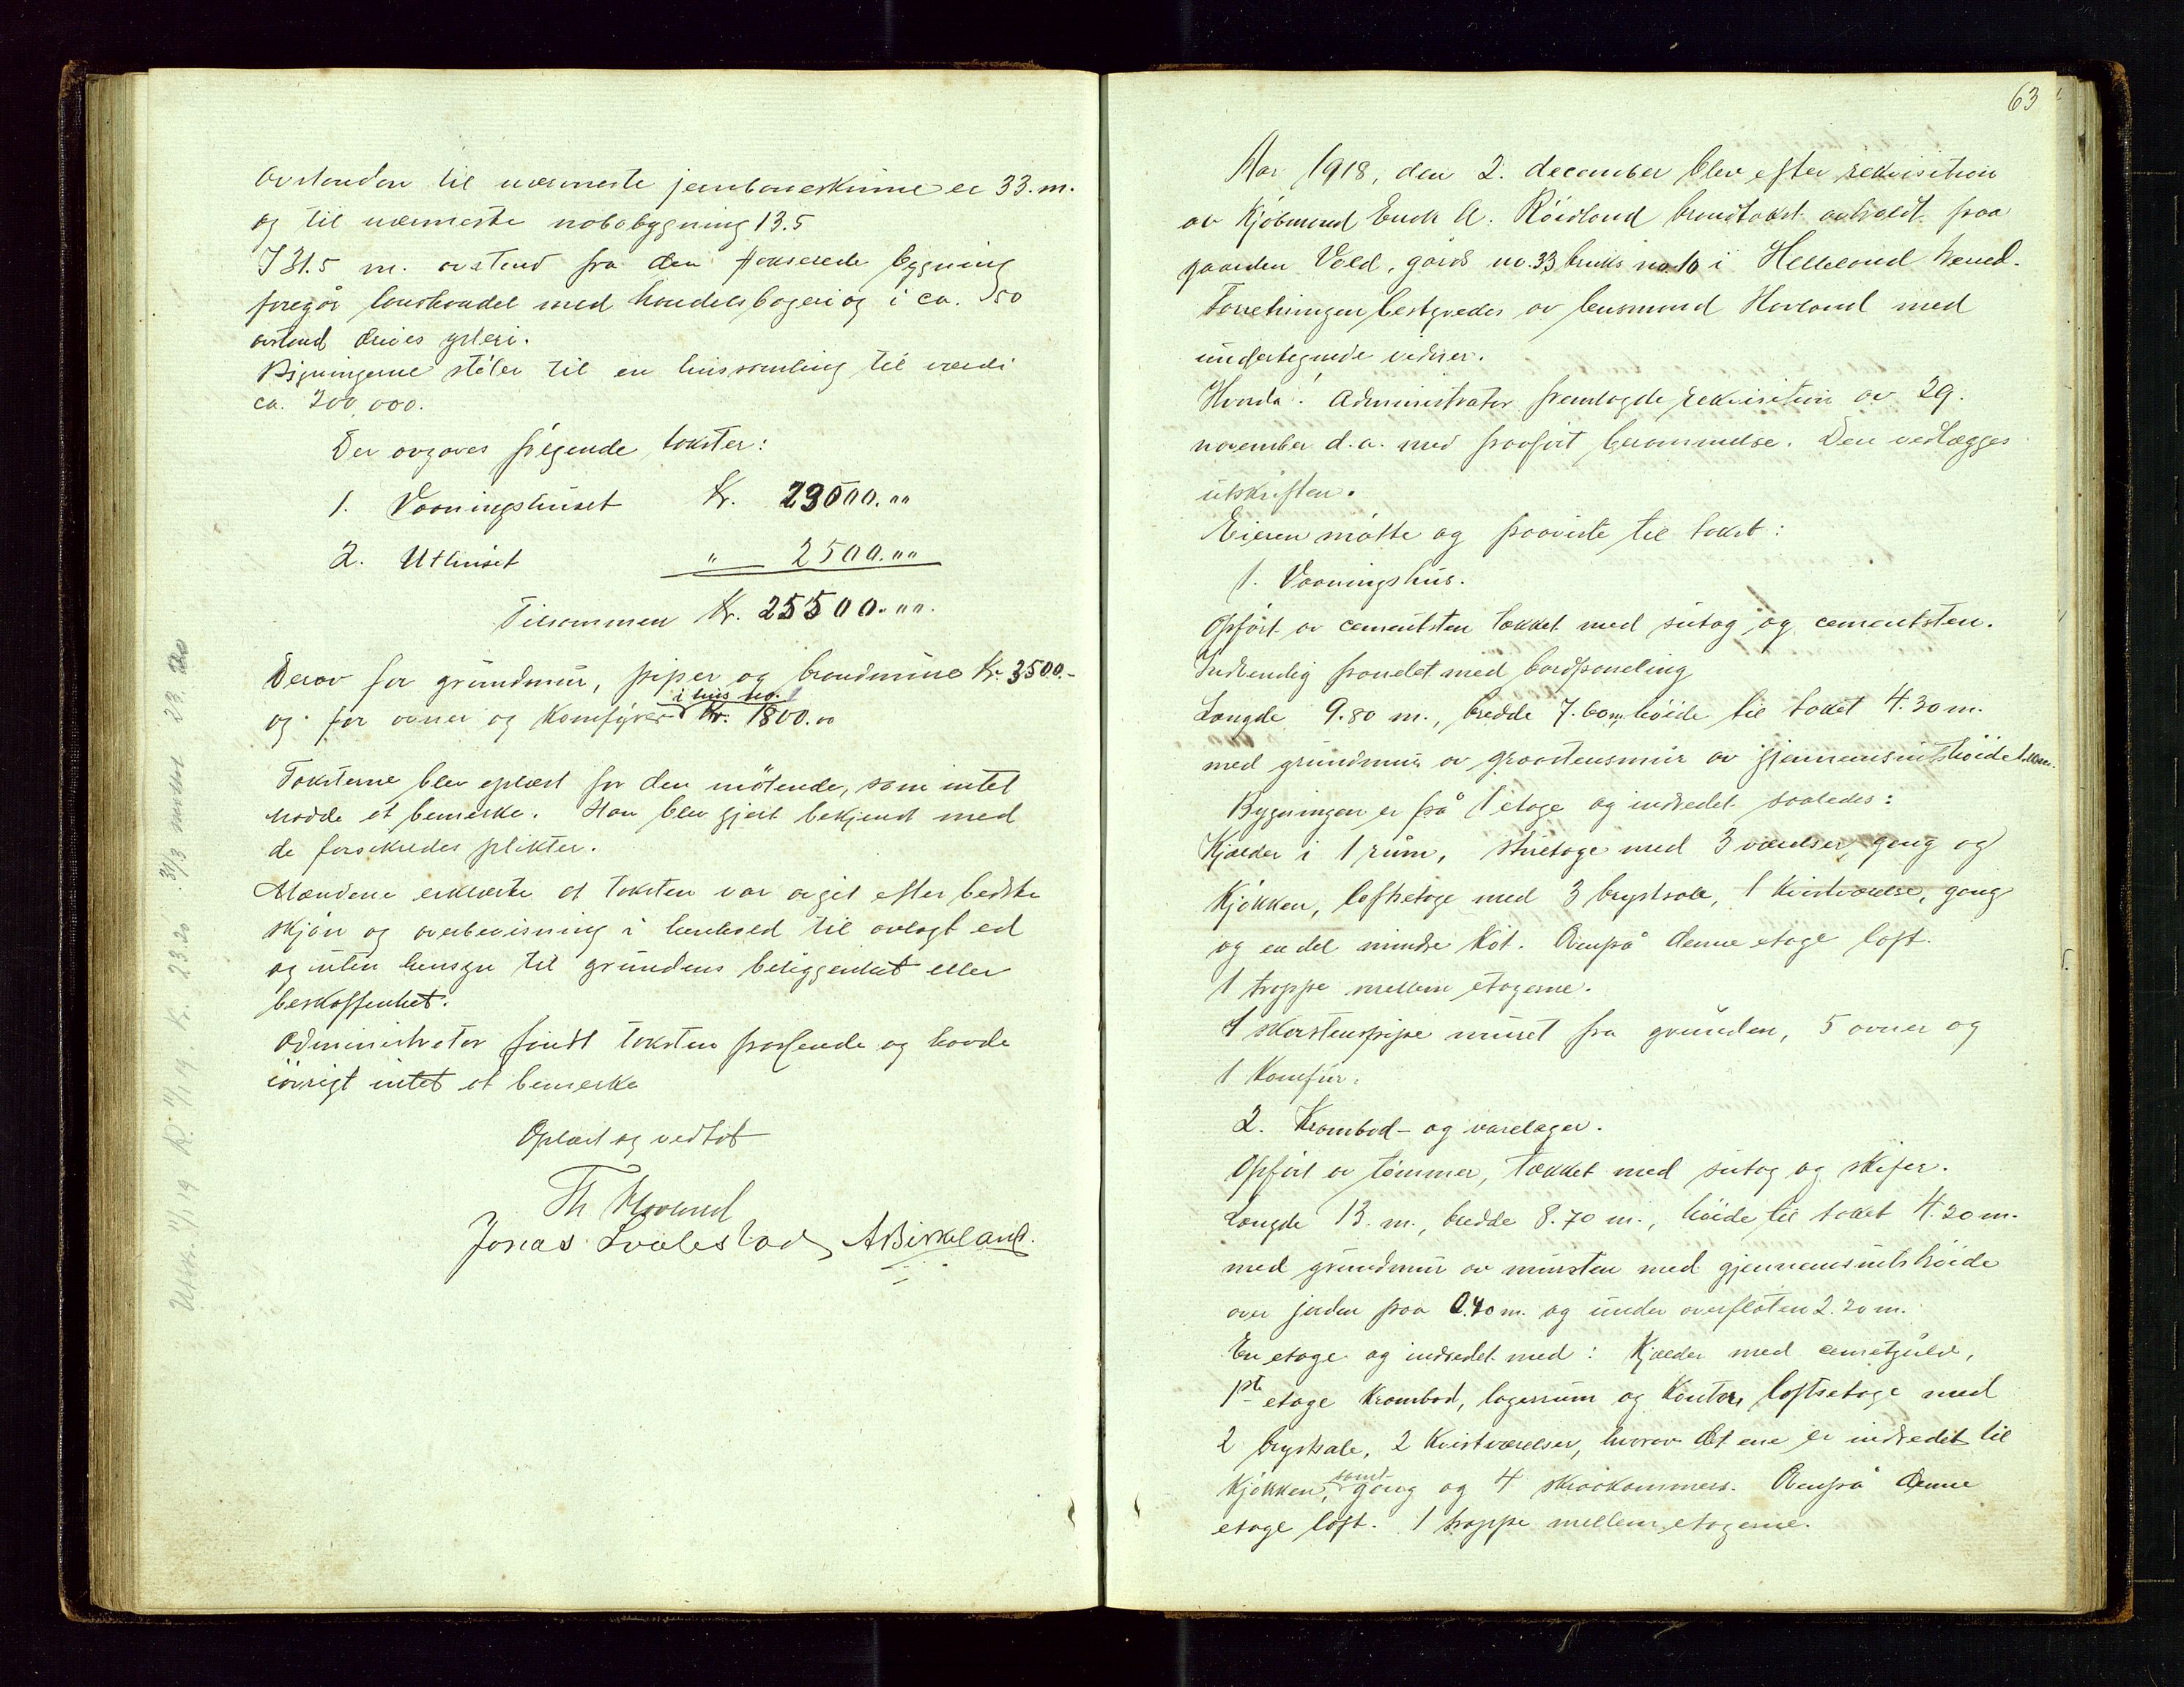 Avstanden til nærmeste jernbaneskinne er 33. m.
og til nærmeste nabobygning 13.5
I 31.5 m. avstand fra den takserede bygning
foregår landhandel med handelsbageri og i ca. 50
avstand drives ysteri.
Bygningerne støter til en hussamling til værdi
ca. 200,000.
Der avgaves følgende takster:
1. Vaaningshuset Kr. 23000.00
2. Uthuset " 2500.00
Tilsammen Kr. 25500.00.
Derav for grundmur, piper og brandmure Kr. 3500.-
i hus no. 1
og for ovner og Komfyrer Kr. 1800.00
Taksterne blev oplæst for den møtende, som intet
hadde at bemerke. Han blev gjort bekjendt med
de forsikredes plikter.
Mændene erklærte at taksten var avgit efter bedste
skjøn og overbevisning i henhold til avlagt ed
og uten hensyn til grundens beliggenhet eller
beskaffenhet.
Administrator fandt taksten passende og havde
iøvrigt intet at bemerke
Oplæst og vedtat
Th Hovland
Jonas Svalestad, A Birkeland.
Utskr. 4/1 19 R. 4/1 19. Kr. 23.20 31/3 mottat 23.20
63
Aar 1918, den 2. december blev efter rekvisition
av Kjøbmand Endr. A. Röidland brandtakst avholdt paa
gaarden Vold, gårds no. 33 bruks no. 10 i Helleland herred.
Forretningen bestyredes av lensmand Hovland med
undertegnede vidner.
Hvorda! Administrator fremlagde rekvisition av 29.
november d.a. med paaført berammelse. Den vedlægges
utskriften.
Eieren møtte og paaviste til takst:
1. Vaaningshus.
Opført av cementsten tækket med sutag og cementsten.
Indvendig panelet med bordpaneling
Længde 9.80 m., bredde 7.60 m, høide til taket 4.30 m.
med grundmur av graastensmur av gjennemsnitshøide
Bygningen er på 1 etage og indredet saaledes:
Kjælder i 1 rum, stuetage med 3 værelser, gang og
Kjøkken, loftsetage med 3 brystsale, 1 Kvistværelse, gang
og en del mindre Kot. Ovenpå denne etage loft.
1 trappe mellem etagerne.
1 skorstenspipe muret fra grunden, 5 ovner og
1 Komfur.
2. Krambod- og varelager.
Opført av tømmer, tækket med sutag og skifer.
Længde 13. m., bredde 8.70 m., høide til taket 4.20 m.
med grundmur av mursten med gjennemsnitshøide
over jorden paa 0.40 m. og under overflaten 2.20 m.
En etage og indredet med: Kjælder med cementgulv,
1ste etage Krambod, lagerrum og Kontor, loftsetage med
2 brystsale, 2 Kvistværelser, hvorav det ene er indredet til
samt
Kjøkken, gang og 4 skraakammers. Ovenpå denne
etage loft. 1 trappe mellem etagerne.